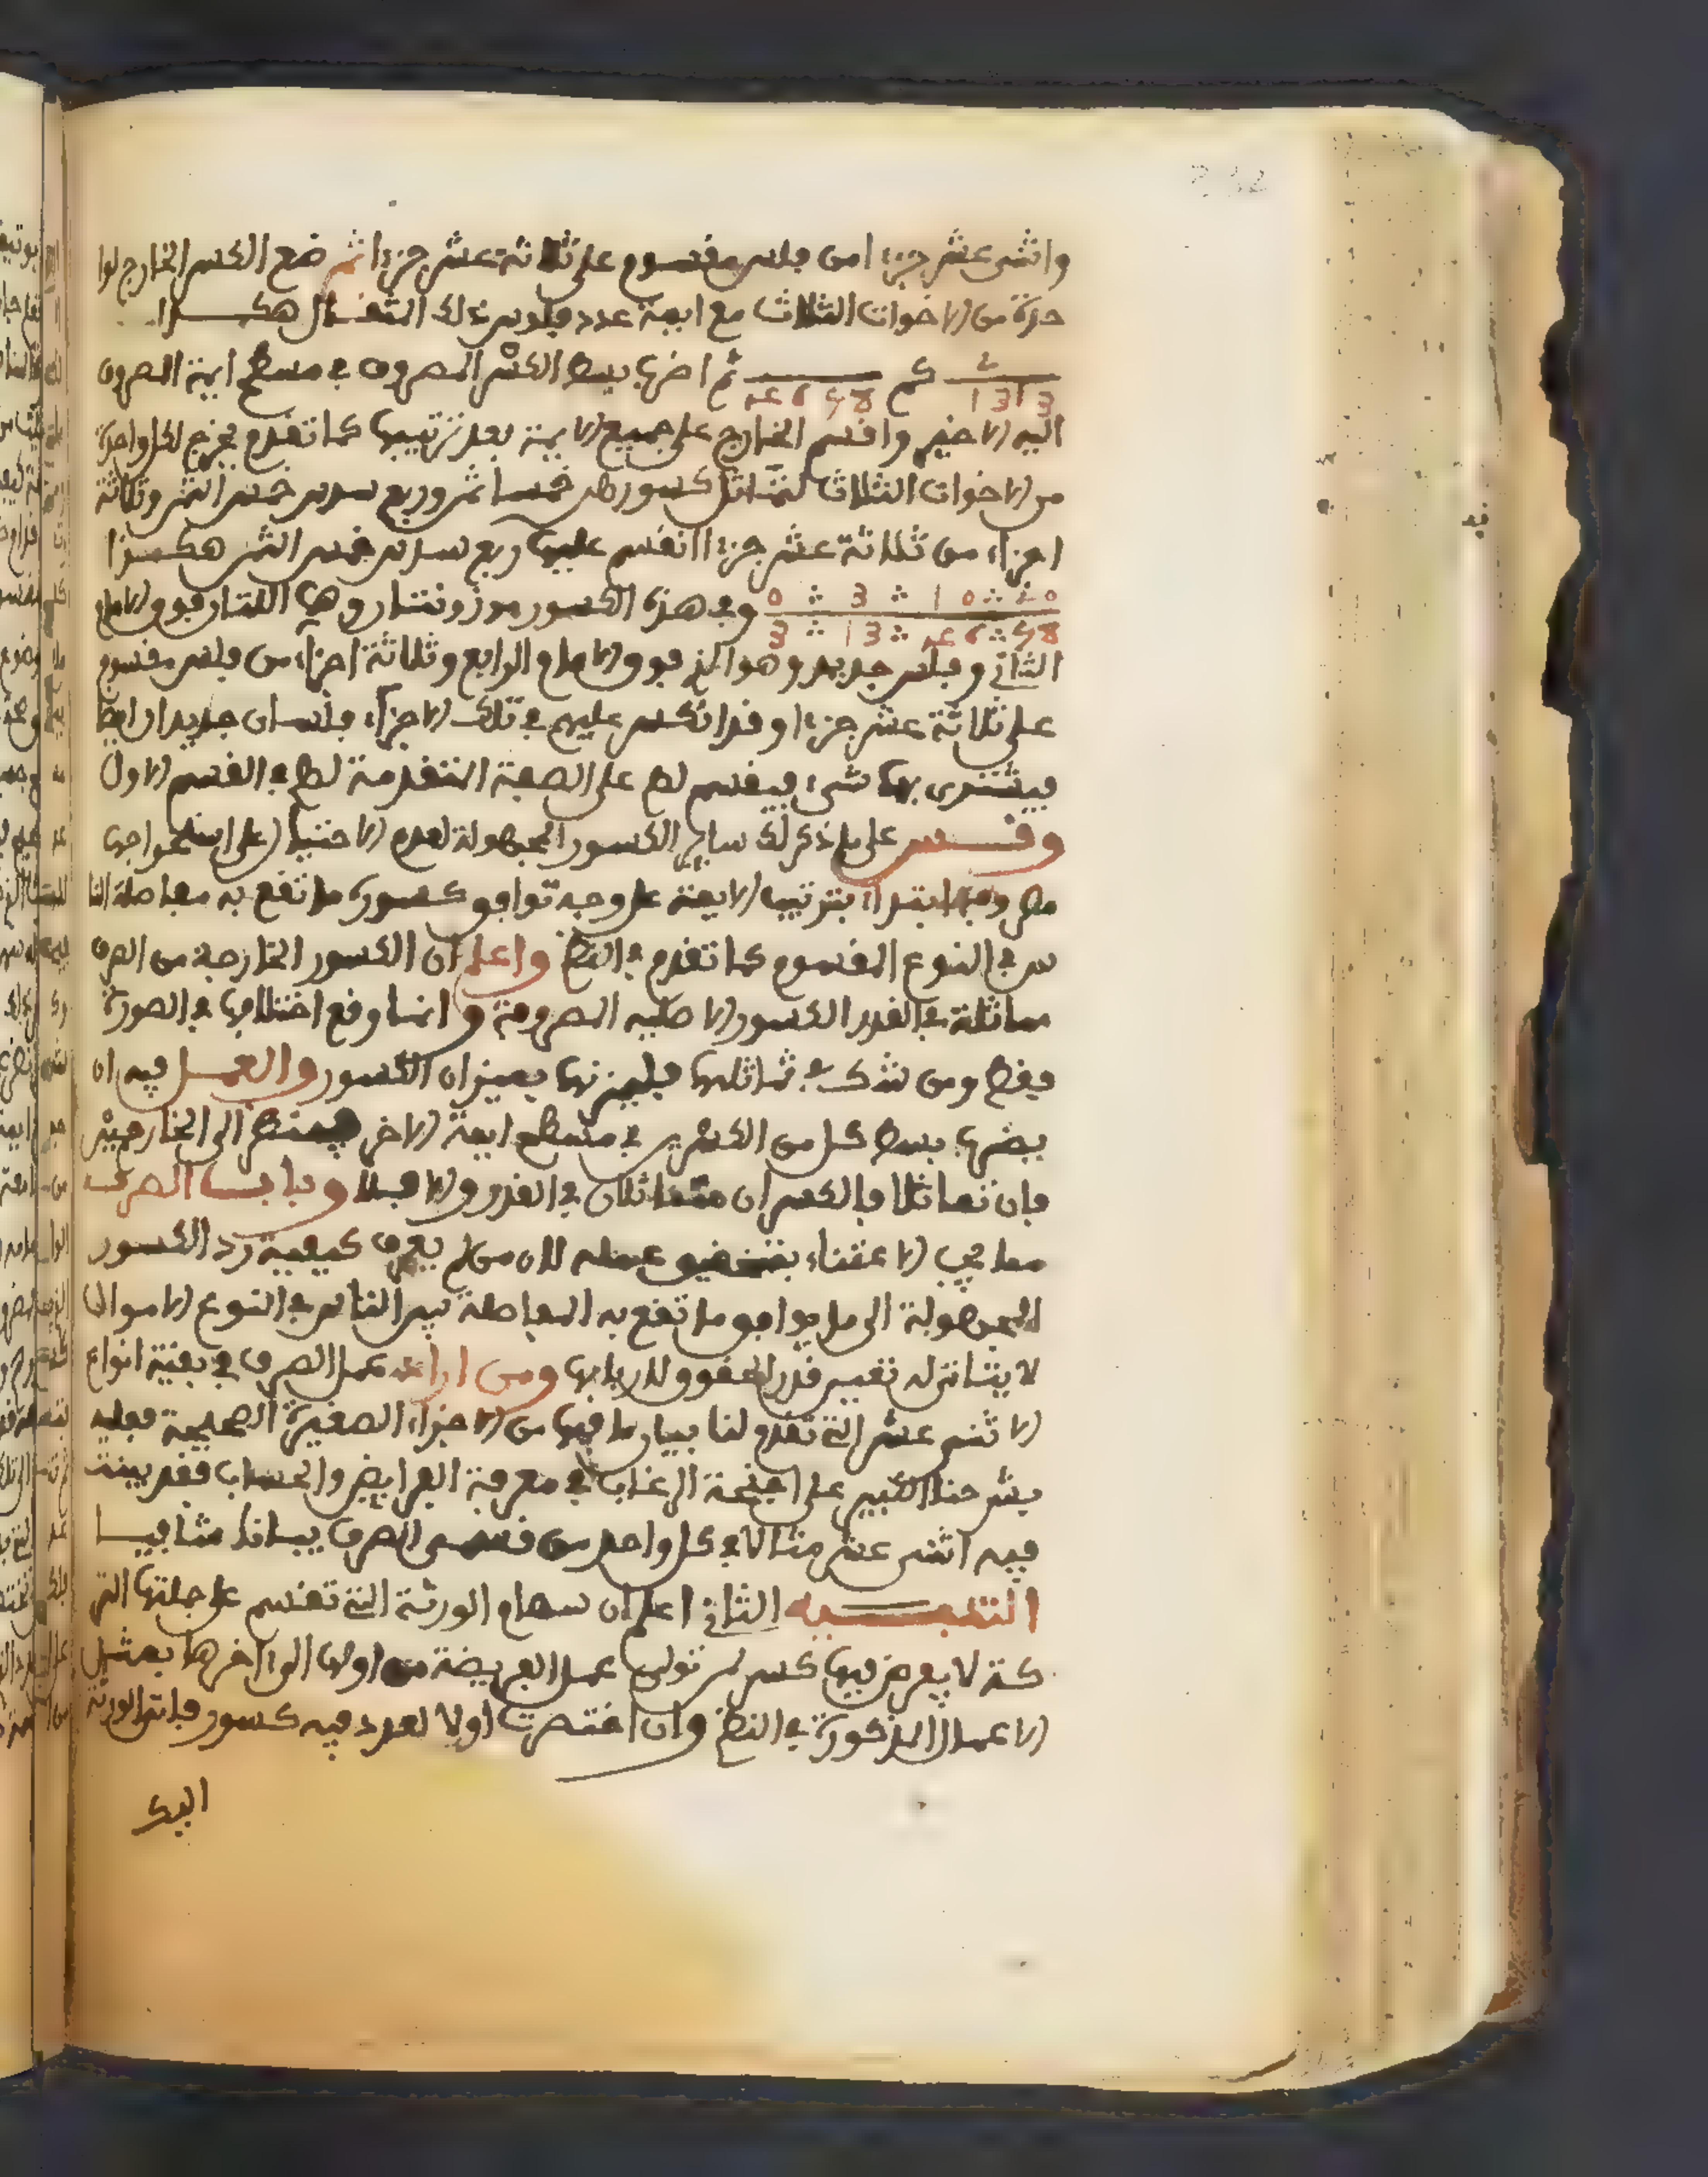 واثنى عشر جزءا من فلس مقسوم على ثلاثة عشر جزءا ثم ضع الكسر الخارج لوا
حدة من الاخوات الثلاث مع ايمة عدد فلوس ذلك المثقال هكــذا
كم ثم اضرب بسط الكسر المصروف في مسطح ايمة المصروف
اليه الاخير واقسم الخارج على جميع الايمة بعد ترتيبها كما تقدم يخرج لكل واحدة
من الاخوات الثلاث كسور خمسا ثمن وربع سدس خمس الثمن وثلاثة
اجزاء من ثلاثة عشر جزءا انقسم عليها ربع سدس خمس الثمن هكــذا
وفي هذه الكسور موزونتان وهي اللتان فوق الامام
الثاني وفلس جديد وهو الذي فوق الامام الرابع وثلاثة اجزاء من فلس مقسوم
على ثلاثة عشر جزءا وقد انكسر عليهم في تلك الاجزاء فلسان جديدان ايضا
فيشترى بها شيء فيقسم لهم على الصفة المتقدمة لهم في القسم الاول
وقــس على ما ذكر لك ساير الكسور المجهولة لعدم الاحتياج على استخراجها
ابتداء بترتيب الايمة على وجه توافق كسوره ما تقع به معاملة النا
س في النوع المقسوم كما تقدم في النظم واعلم ان الكسور الخارجة من الصرف
مماثلة في القدر الكسور الاصلية المصروفة وانما وقع اختلافها في الصورة
فقط ومن شك في تماثلها فليمزنها بميزان الكسور والعمــل فيه ان
يضرب بسط كل من الكسرين في مسطح ايمة الاخر فينظر الى الخارجين
فان تماثلا فالكسران متماثلان في القدر والا فلا وبابــا الصرف
مما يجب الاعتناء بتحقيق عمله لان من لم يعرف كيفية رد الكسور
المجهولة الى ما يوافق ما تقع به المعاملة بين الناس في النوع الاموال
لا يتاتى له تعيين قدر الحقوق لاربابها ومن اراد عمل الصرف في بقية انواع
الاثنى عشر التي تقدم لنا بيان ما فيها من الاجزاء الصغيرة الصحيحة فعليه
بشرحنا الكبير على اجنحة الرغاب في معرفة الفرايض والحساب فقد بينت
فيه اثنى عشر مثالا في كل واحد من قسمي الصرف بيانا شافيــا
التنبــــيه الثاني اعلم ان سهام الورثة التي تقسم على جملتها التر
كة لا يعرض فيها كسر لمن تولى عمل الفريضة من اولها الى اخرها بمثل
الاعمال المذكورة في النظم وان اختصرت اولا لعدد فيه كسور فات الورثة